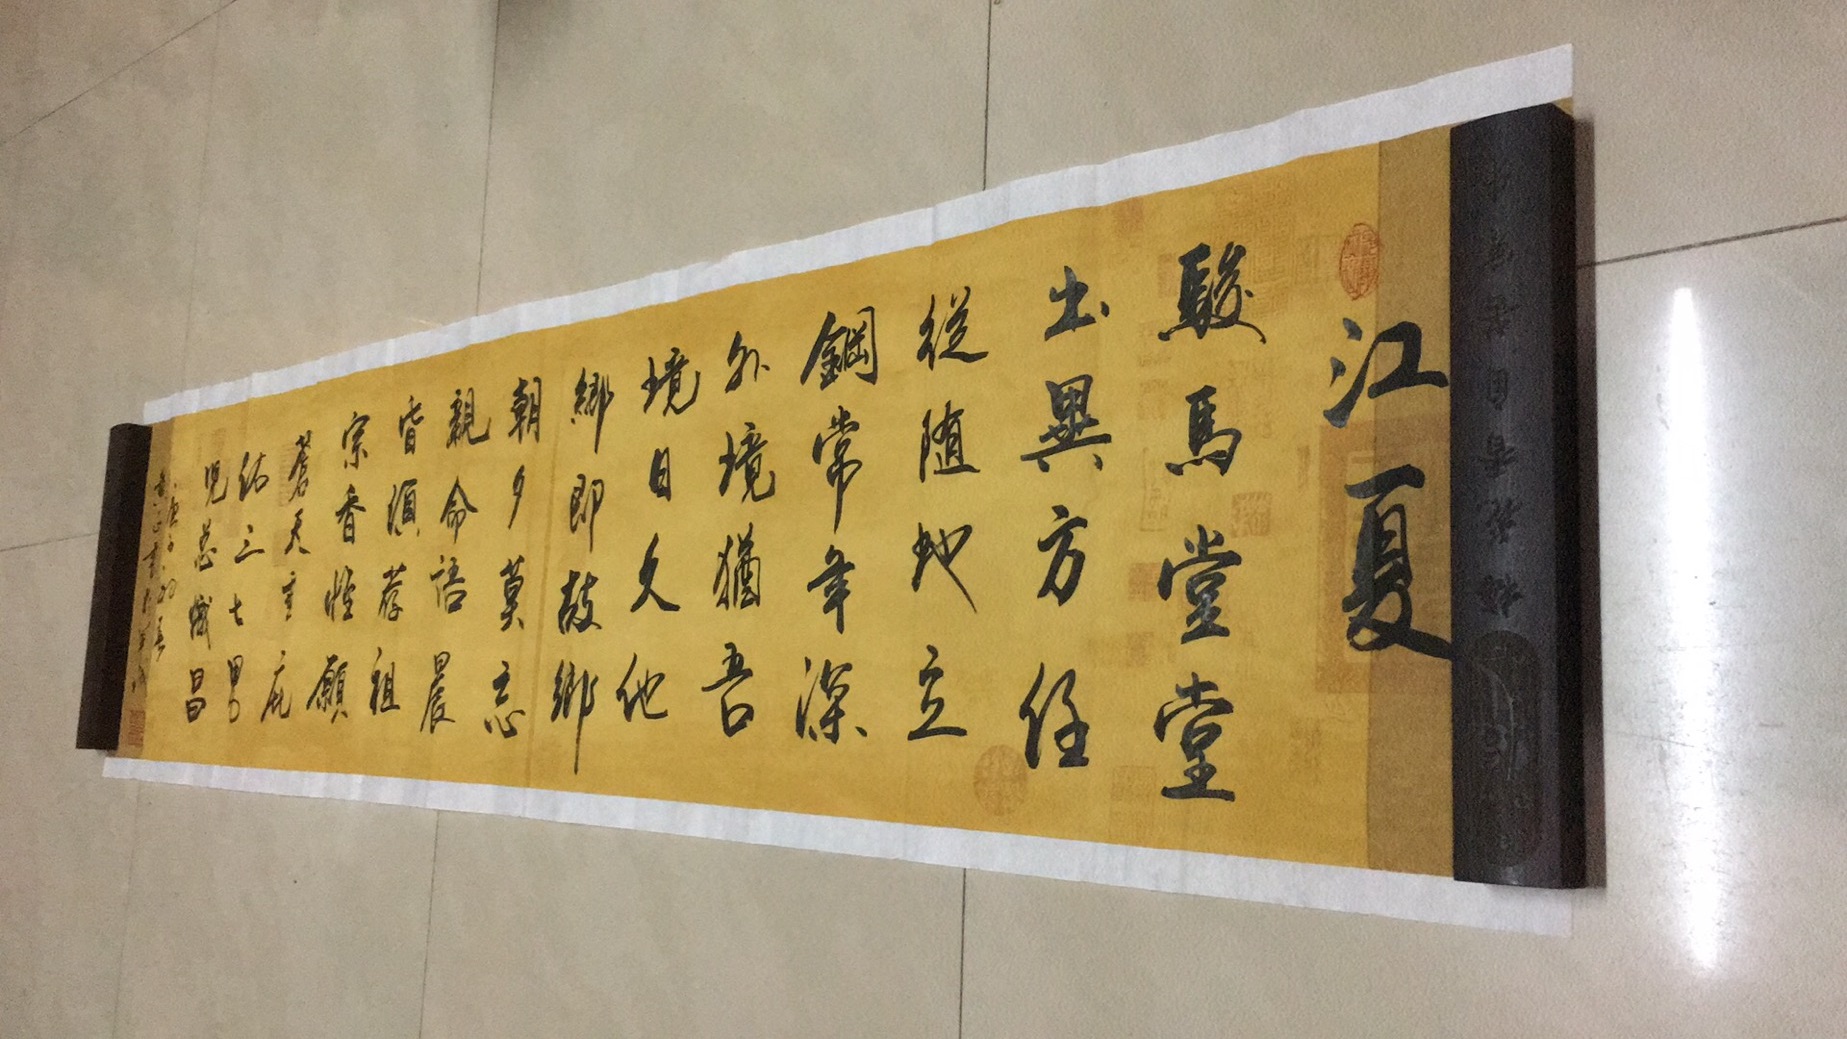 江夏
駿馬堂堂
出異方任
從随地立
鋼常年深
外境猶吾
境日久他
鄉即故鄉
朝夕莫忘
親命語晨
昏須荐祖
宗香惟願
蒼天重庇
佑三七男
児总熾昌